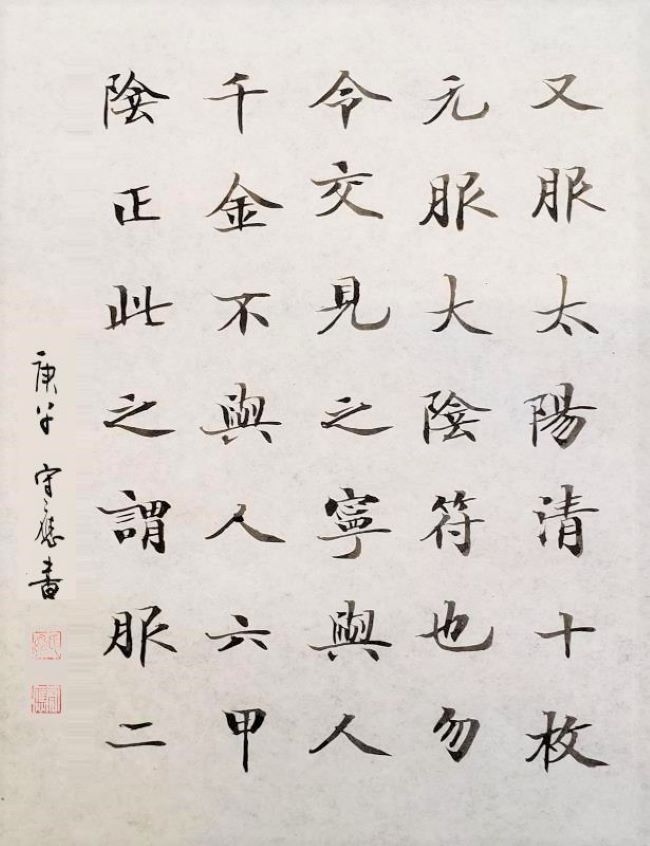 又服太陽清十枚
元服大陰符也勿
令交見之寧與人
千金不與人六甲
陰正此之謂服二
庚 守應書